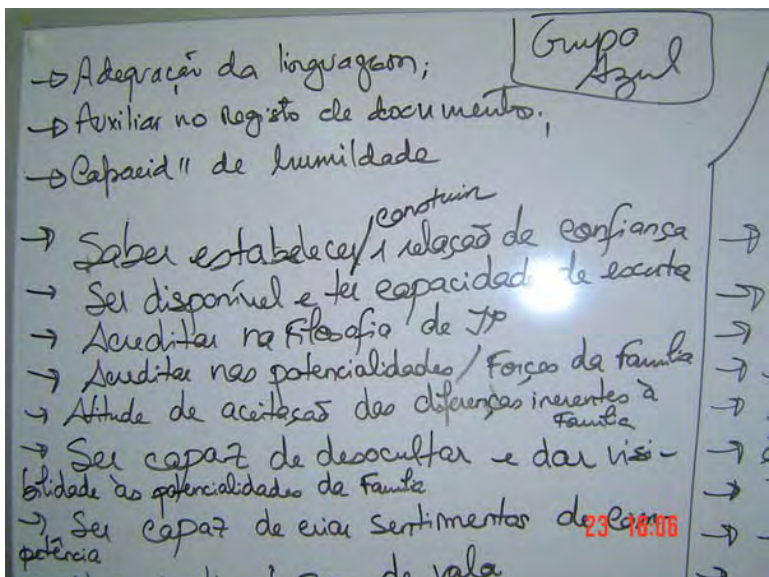 Grupo
Azul
→ Adequação da linguagem;
→ Auxiliar no Registo de documento;
→ Capacid" de humildade
construir
→ Saber estabelecer/ 1 relação de confiança
→ Ser disponível e ter capacidade de escuta
→ Acreditar na Filosofia de IP
→ Acreditar nas potencialidades/Forças da Família
→ Atitude de aceitação das diferenças inerentes à
Família
→ Ser capaz de desocultar e dar visi-
bilidade às potencialidades da Família
→ Ser capaz de criar sentimentos de com-
petência
23 18:06
de